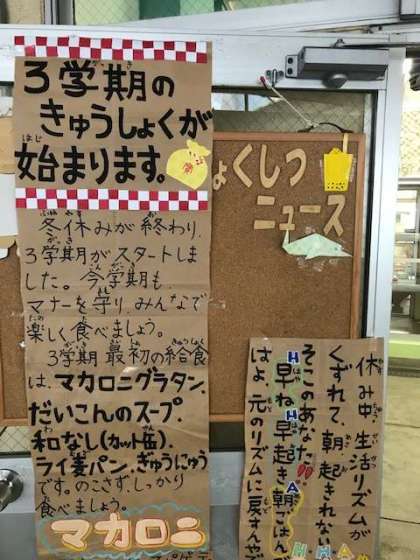 3学期の
きゅうしょくが
始まります。
冬休みが終わり、
3学期がスタートしま
した。今学期も、
マナーを守り、みんなで
楽しく食べましょう。
3学期最初の給食
は、マカロニグラタン、
だいこんのスープ、
和なし(カット缶)、
ライ麦パン、ぎゅうにゅう
です。のこさず、しっかり
食べましょう。
マカロニ
ょくしつ
ニュース
休み中、生活リズムが
くずれて、朝起きれない
そこのあなた!!
早ね早起き朝ごはん
はよ、元のリズムに戻すんや